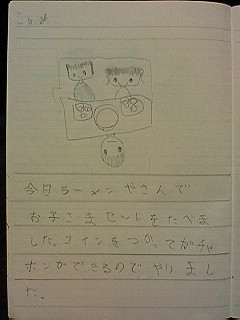 今日ラーメンやさんで
お子さまセットをたべま
した。コインをつかってガチャ
ポンができるのでやりまし
た。